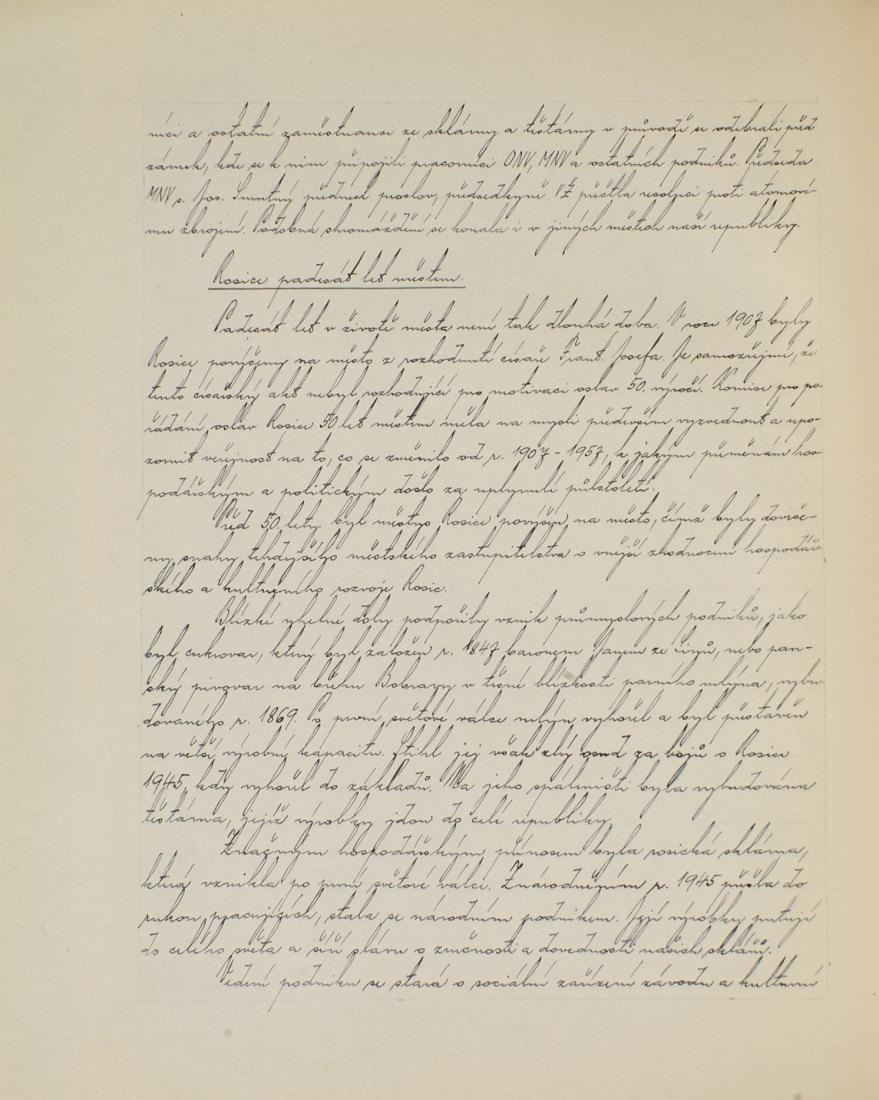 níci a ostatní zaměstnanci ze sklárny a těstárny v průvodě se odebrali před
zámek, kde se k nim připojili pracovníci ONV, MNV a ostatních podniků. Předseda
MNV s. Jos. Smutný přednesl proslov, předsedkyně VŽ přečtla resoluci proti atomové-
mu zbrojení. Podobná shromáždění se konala i v jiných městech naší republiky.
Rosice padesát let městem.
Padesát let v životě města není tak dlouhá doba. V roce 1907 byly
Rosice povýšeny na město z rozhodnutí císaře Frant. Josefa. Je samozřejmé, že
tento císařský akt nebyl rozhodující pro motivaci oslav 50. výročí. Komise pro po-
řádání oslav Rosice 50 let městem měla na mysli především vyzvednout a upo-
zornit veřejnost na to, co se změnilo od r. 1907 - 1957, k jakým přeměnám hos-
podářským a politickým došlo za uplynulé půlstoletí.
Před 50 lety byl městys Rosice povýšen na město, čímž byly dovrše-
ny snahy tehdejšího městského zastupitelstva o vnější zhodnocení hospodář-
ského a kulturního rozvoje Rosic.
Blízké uhelné doly podpořily vznik průmyslových podniků, jako
byl cukrovar, který byl založen r. 1847 baronem Janem ze Sinů, nebo pan-
ský pivovar na břehu Bobravy v těsné blízkosti parního mlýna, vybu-
dovaného r. 1869. Po první světové válce mlýn vyhořel a byl přestavěn
na větší výrobný kapacitu. Stihl jej však zlý osud za bojů o Rosice
1945, kdy vyhořel do základů. Na jeho spáleništi byla vybudována
těstárna, jejíž výrobky jdou do celé republiky.
Značným hospodářským přínosem byla rosická sklárna,
která vznikla po první světové válce. Znárodněním r. 1945 přešla do
rukou pracujících, stala se národním podnikem. Její výrobky putují
do celého světa a šíří slávu o zručnosti a dovednosti našich sklářů.
Vedení podniku se stará o sociální zařízení závodu a kulturní